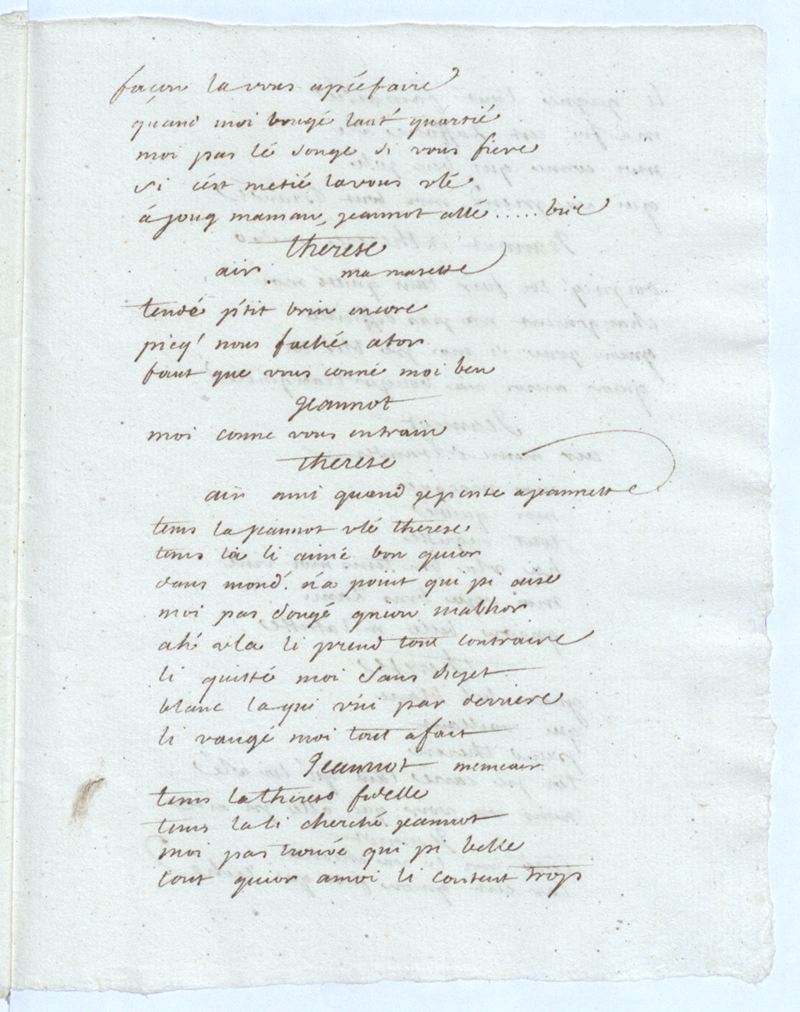 façon la vous apré faire
quand moi bougé laut quartié
moi pas lé songe si vous fiere
si cést metié la vous vlé
á jouq maman, jeannot allé ..... brie
therese
air. ma musette
tendé p'tit brin encore
picq' nous faché ator
faut que vous conné moi ben
jeannot
moi conne vous en train
therese
air ami quand je pense a jeannette
tems la jeannot vlé therese
tems la li aimé bon quior
dans mond. n'a point qui pi aise
moi pas songé gnion malhor
ahé vla li prend tout contraire
li quitté moi sans sujet
blanc la qui vini par derriere
li vangé moi tout a fait
Jeannot meme air
tems la therese fidelle
tems la li cherché jeannot
moi pas trouvé qui pi belle
tout quior a moi li content trop